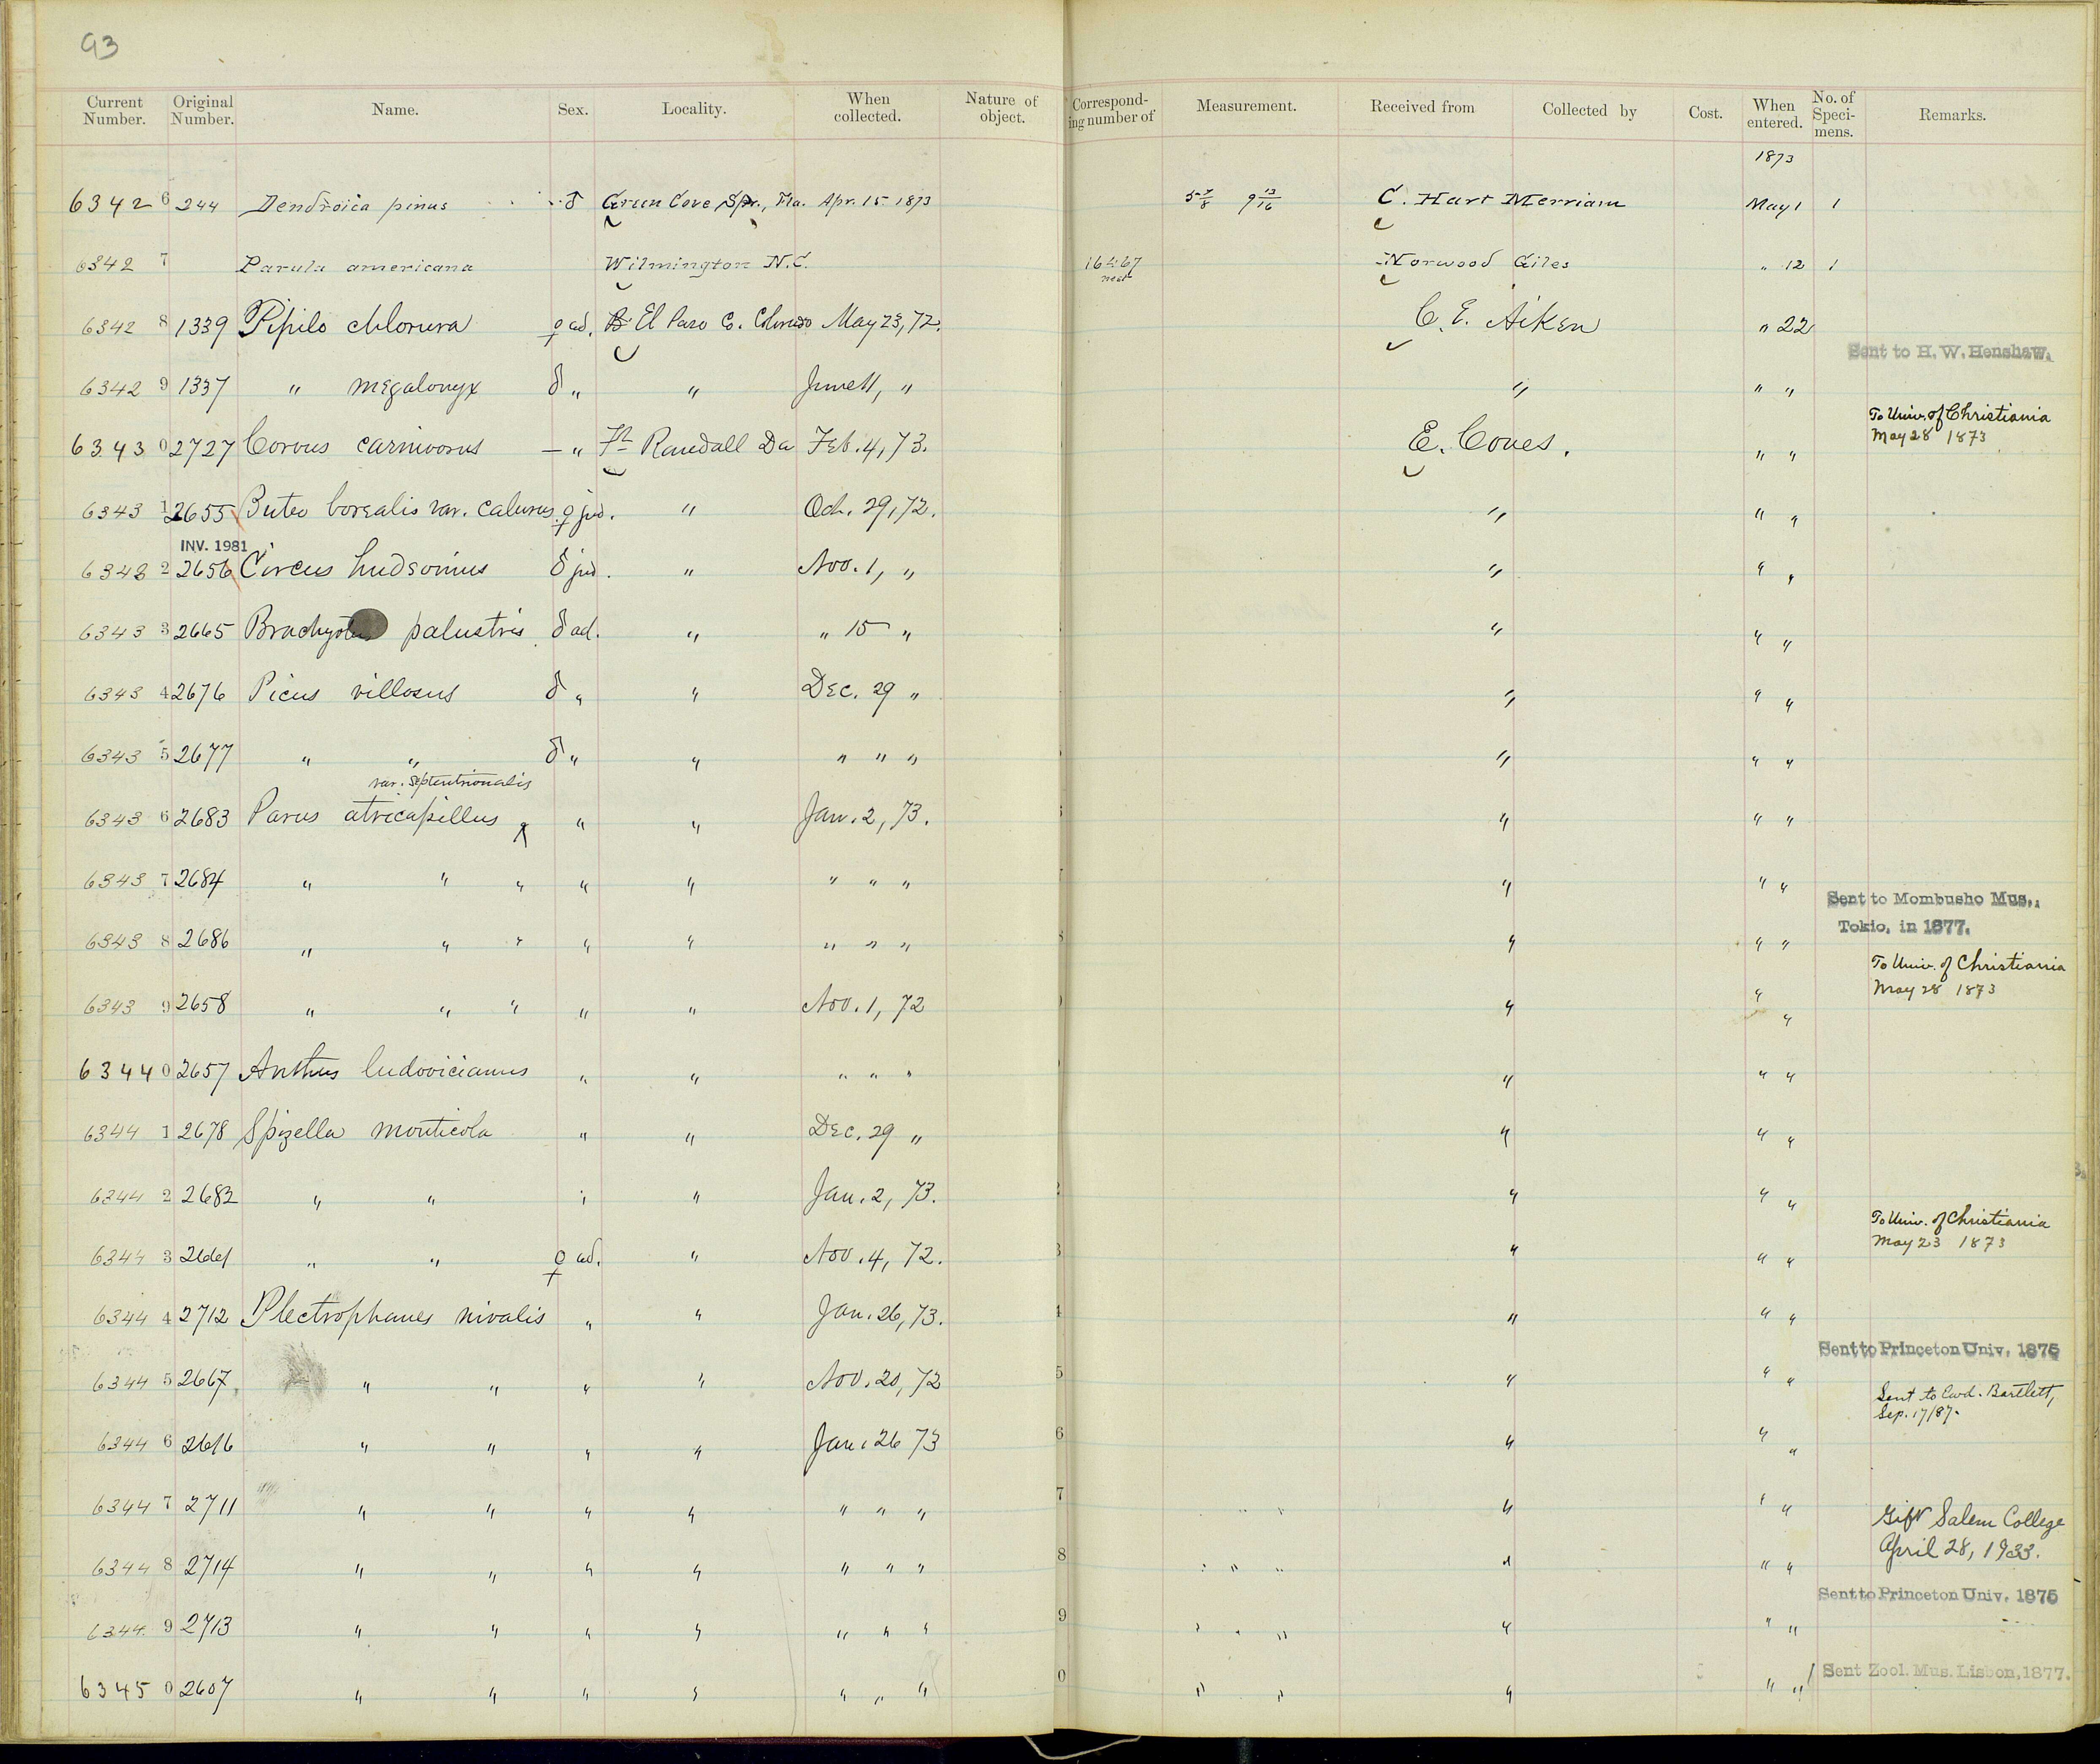 93
Current Number. Original Number. Name. Sex. Locality. When collected. Nature of object. Corresponding number of Measurement. Received from Collected by Cost. When entered. No. of Specimens. Remarks.
1873
6342 6 244 Dendroica pinus ♂ Green Cove Spr., Fla. Apr. 15 1873 5 7/8 9 13/16 C. Hart Merriam May 1 1
6342 7 Parula americana Wilmington N.C. 16467 nest Norwood Giles " 12 1
6342 8 1339 Pipilo chlorura ♀ ad. El Paso Co. Colorado May 23, 72. C. E. Aiken " 22
Sent to H. W. Henshaw.
6342 9 1337 " megalonyx ♂ " " June 11, " " " "
To Univ. of Christiania
May 28 1873
6343 0 2727 Corvus carnivorus — " Ft Randall Da Feb. 4, 73. E. Coues. " "
6343 1 2655 Buteo borealis var. calurus ♀ juv. " Oct. 29, 72. " " "
INV. 1981
6343 2 2656 Circus hudsonius ♂ juv. " Nov. 1, " " " "
6343 3 2665 Brachyotus palustris ♂ ad. " " 15 " " " "
6343 4 2676 Picus villosus ♂ " " Dec. 29 " " " "
6343 5 2677 " " ♂ " " " " " " " "
var. septentrionalis
6343 6 2683 Parus atricapillus ^ " " Jan. 2, 73. " " "
6343 7 2684 " " " " " " " " " " "
Sent to Mombusho Mus.,
Tokio, in 1877.
6343 8 2686 " " " " " " " " " " "
To Univ. of Christiania
May 28 1873
6343 9 2658 " " " " " Nov. 1, 72 " " "
6344 0 2657 Anthus ludovicianus " " " " " " " "
6344 1 2678 Spizella monticola " " Dec. 29 " " " "
6344 2 2682 " " " " Jan. 2, 73. " " "
To Univ. of Christiania
May 23 1873
6344 3 2661 " " ♀ ad. " Nov. 4, 72. " " "
6344 4 2712 Plectrophanes nivalis " " Jan. 26, 73. 4 " " "
Sent to Princeton Univ. 1875
6344 5 2667 " " " " Nov. 20, 72 5 " " "
Sent to Ewd. Bartlett,
Sep. 17/87.
6344 6 " " " " Jan. 26 73 6 " " "
6344 7 2711 " " " " " " " 7 " " "
Gift Salem College
April 28, 1933.
6344 8 2714 " " " " " " " 8 " " "
Sent to Princeton Univ. 1875
6344 9 2713 " " " " " " " 9 " " "
6345 0 2607 " " " " " " " 0 " " " " " Sent Zool. Mus. Lisbon, 1877.